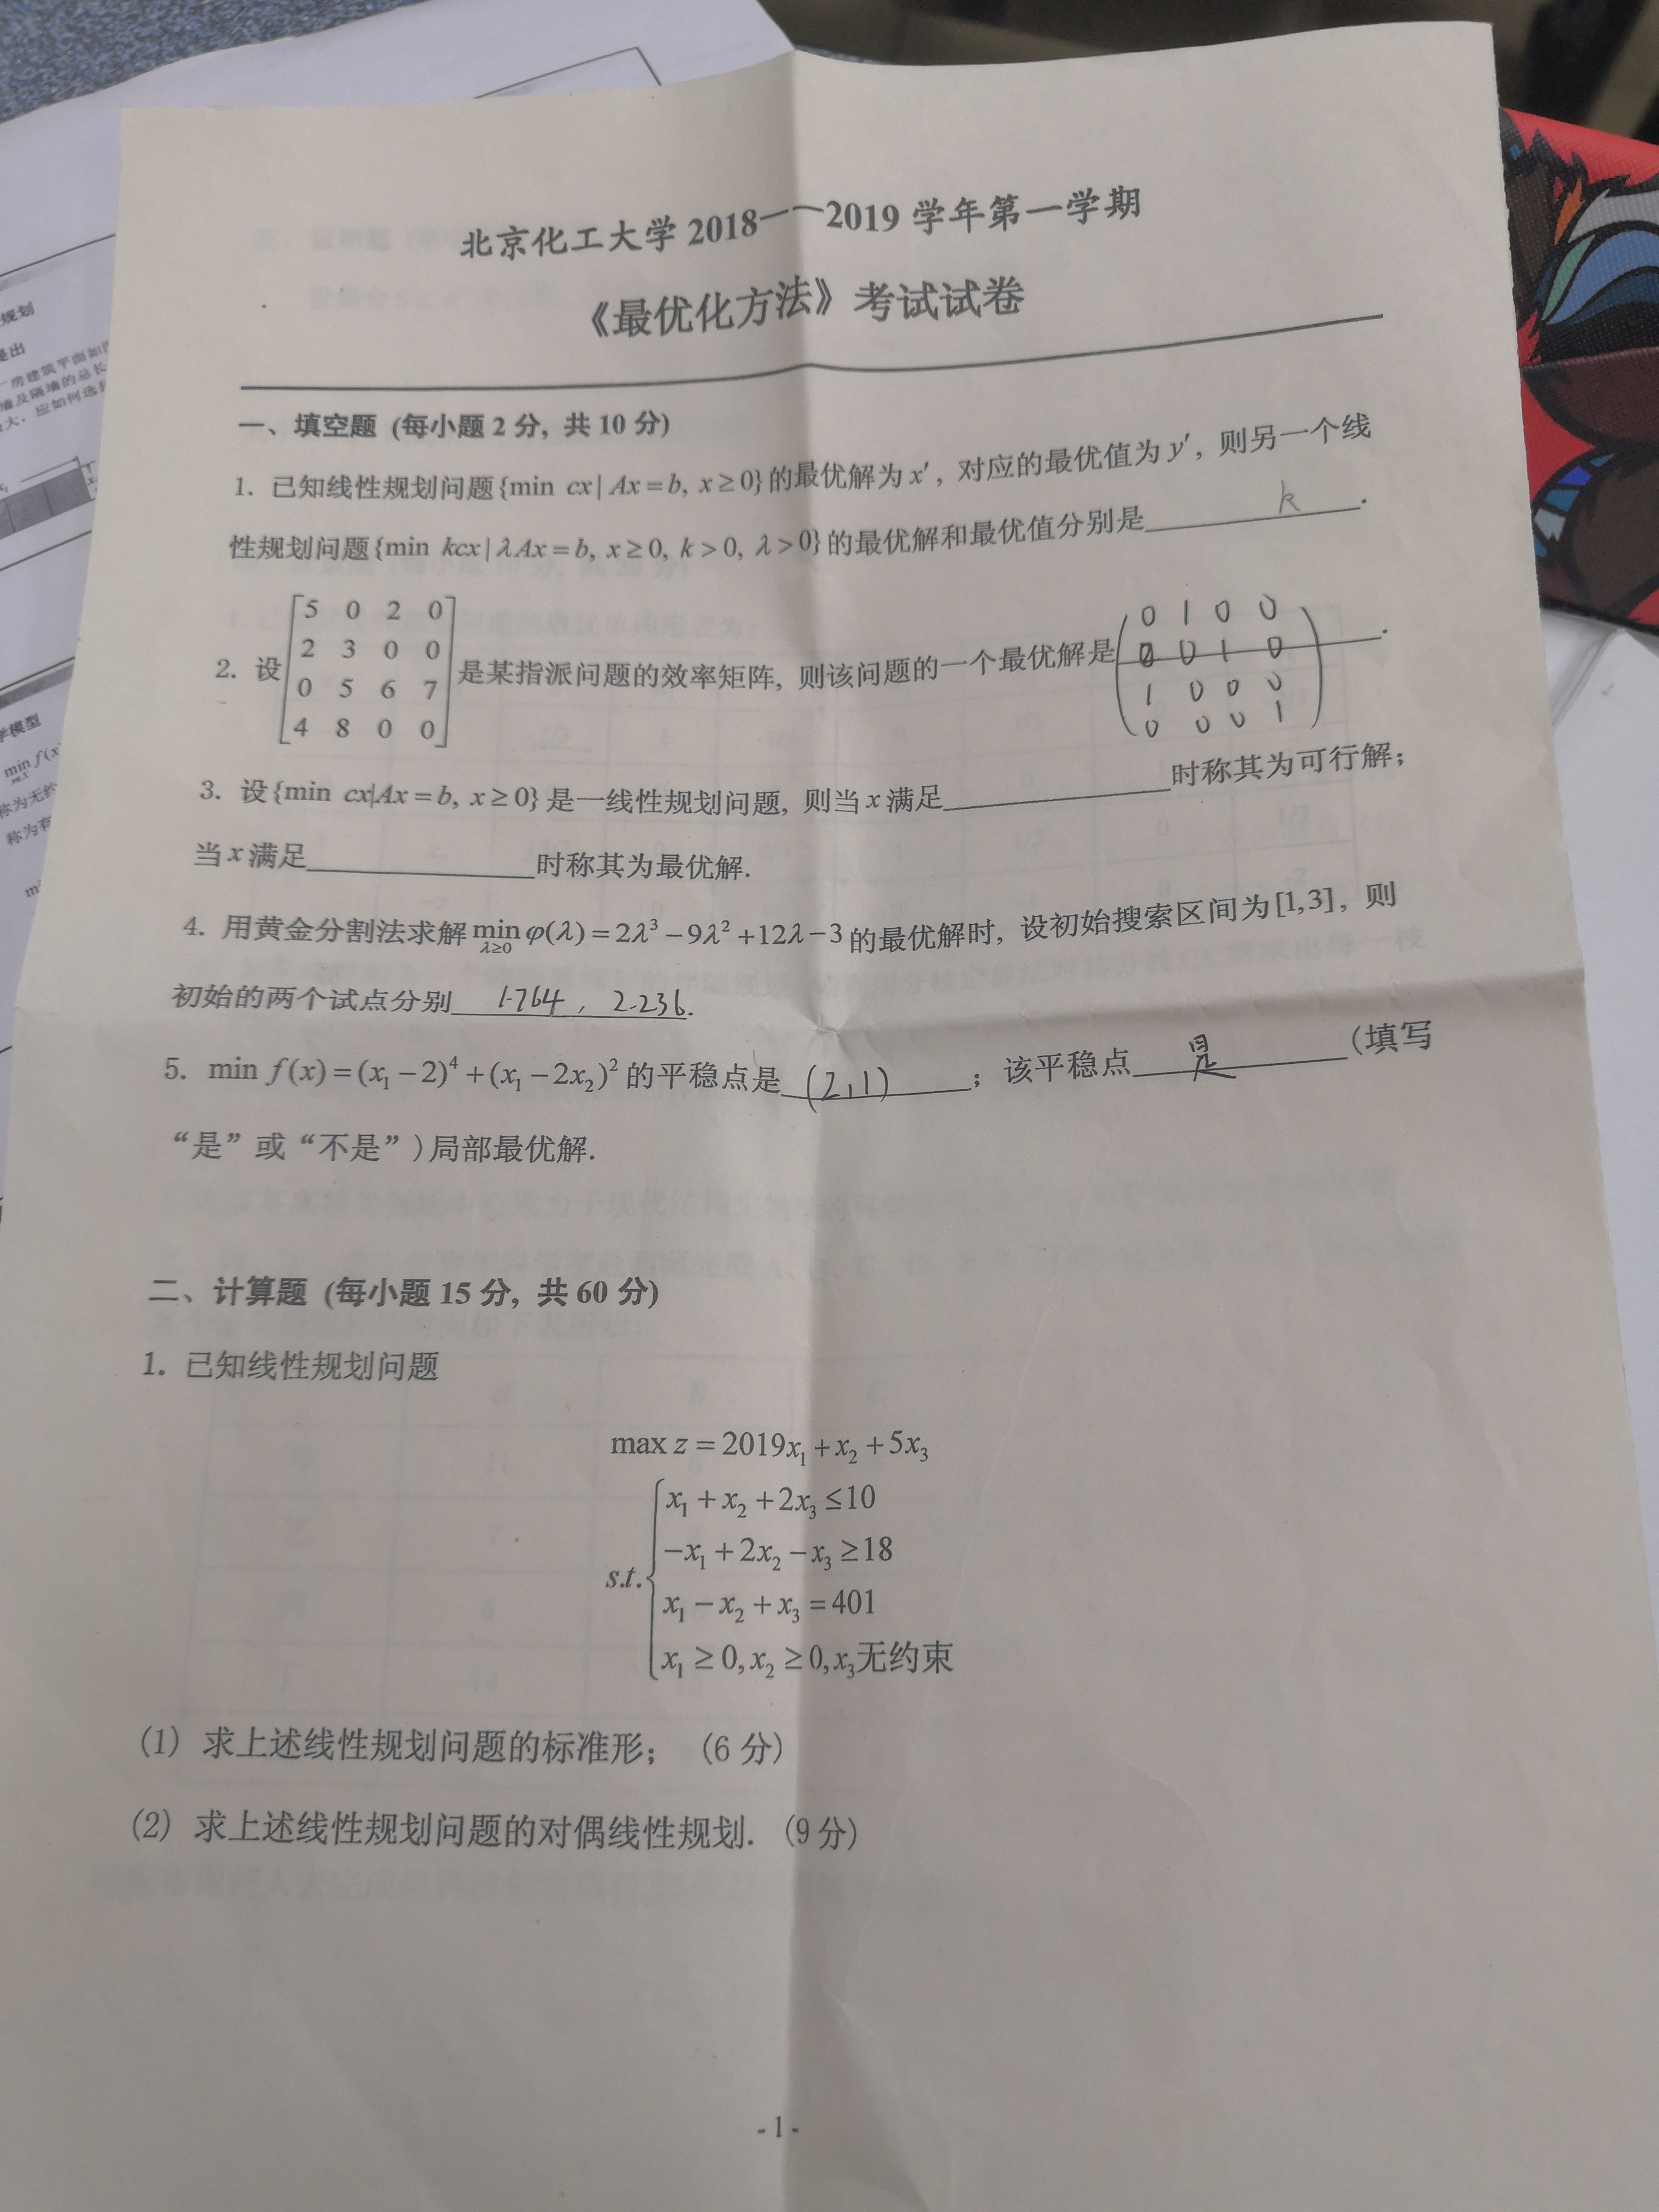 北京化工大学 2018——2019 学年第一学期
《最优化方法》考试试卷
一、填空题 (每小题 2 分, 共 10 分)
1. 已知线性规划问题{min cx | Ax = b, x ≥ 0}的最优解为 x′, 对应的最优值为 y′, 则另一个线
性规划问题{min kcx | λAx = b, x ≥ 0, k > 0, λ > 0}的最优解和最优值分别是 k .
2. 设
5 0 2 0
2 3 0 0
0 5 6 7
4 8 0 0
是某指派问题的效率矩阵, 则该问题的一个最优解是
0 1 0 0
0 0 1 0
1 0 0 0
0 0 0 1
.
3. 设{min cx|Ax = b, x ≥ 0}是一线性规划问题, 则当 x 满足 时称其为可行解;
当 x 满足 时称其为最优解.
4. 用黄金分割法求解 min λ≥0 φ(λ) = 2λ³ − 9λ² + 12λ − 3 的最优解时, 设初始搜索区间为[1,3], 则
初始的两个试点分别 1.764 , 2.236.
5. min f(x) = (x₁ − 2)⁴ + (x₁ − 2x₂)² 的平稳点是 (2,1) ; 该平稳点 是 (填写
“是”或“不是”)局部最优解.
二、计算题 (每小题 15 分, 共 60 分)
1. 已知线性规划问题
max z = 2019x₁ + x₂ + 5x₃
x₁ + x₂ + 2x₃ ≤ 10
−x₁ + 2x₂ − x₃ ≥ 18
s.t.
x₁ − x₂ + x₃ = 401
x₁ ≥ 0, x₂ ≥ 0, x₃无约束
(1) 求上述线性规划问题的标准形; (6 分)
(2) 求上述线性规划问题的对偶线性规划. (9 分)
- 1 -
规划
房建筑平面如
墙及隔墙的总长
大, 应如何选择
学模型
min f(x
称为无约
称为有